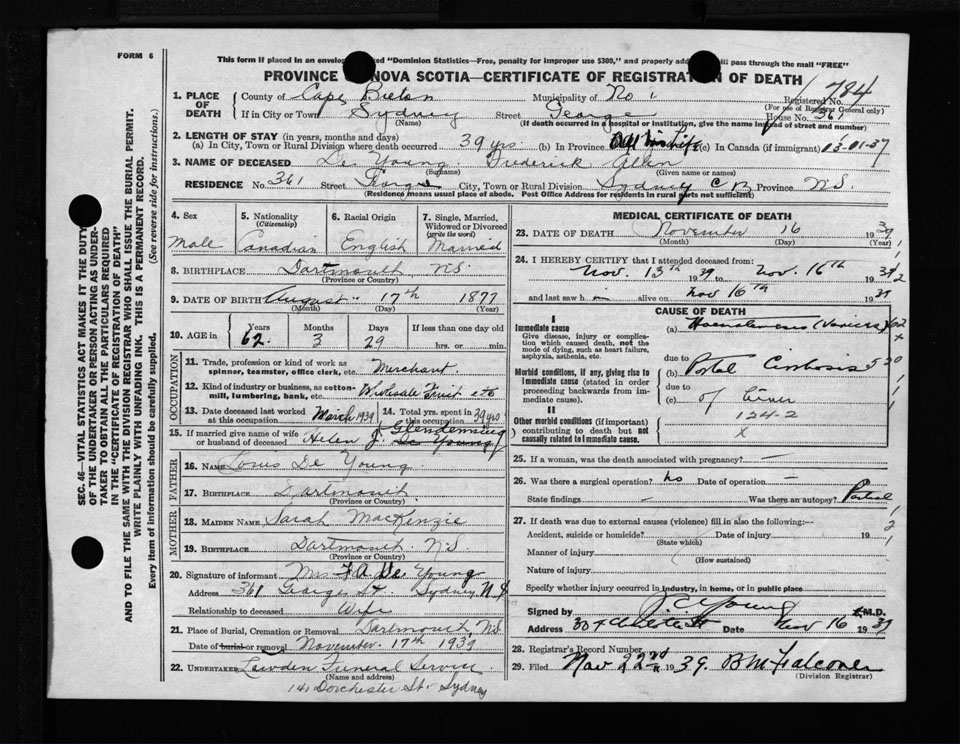 FORM 6
This form if placed in an envelope marked "Dominion Statistics—Free, penalty for improper use $300," and properly addressed will pass through the mail "FREE"
PROVINCE OF NOVA SCOTIA—CERTIFICATE OF REGISTRATION OF DEATH
784
1. PLACE OF DEATH County of Cape Breton Municipality of No 1 Registered No.
(For use of Registrar General only)
If in City or Town Sydney Street George House No. 361
(Name) (If death occurred in a hospital or institution, give the name instead of street and number)
2. LENGTH OF STAY (in years, months and days)
(a) In City, Town or Rural Division where death occurred 39 yrs. (b) In Province Life (c) In Canada (if immigrant) 03-01-37
3. NAME OF DECEASED De Young Frederick Allen
(Surname) (Given name or names)
RESIDENCE No. 361 Street George City, Town or Rural Division Sydney C B Province N.S.
(Residence means usual place of abode. Post Office Address for residents in rural parts not sufficient)
SEC. 46—VITAL STATISTICS ACT MAKES IT THE DUTY
OF THE UNDERTAKER OR PERSON ACTING AS UNDER-
TAKER TO OBTAIN ALL THE PARTICULARS REQUIRED
IN THE "CERTIFICATE OF REGISTRATION OF DEATH"
AND TO FILE THE SAME WITH THE DIVISION REGISTRAR WHO SHALL ISSUE THE BURIAL PERMIT.
WRITE PLAINLY WITH UNFADING INK. THIS IS A PERMANENT RECORD.
Every item of information should be carefully supplied. (See reverse side for instructions.)
4. Sex 5. Nationality (Citizenship) 6. Racial Origin 7. Single, Married, Widowed or Divorced (write the word)
Male Canadian English Married
8. BIRTHPLACE Dartmouth N.S.
(Province or Country)
9. DATE OF BIRTH August 17th 1877
(Month) (Day) (Year)
10. AGE in Years Months Days If less than one day old
62. 3 29 hrs. or min.
OCCUPATION
11. Trade, profession or kind of work as spinner, teamster, office clerk, etc. Merchant
12. Kind of industry or business, as cotton-mill, lumbering, bank, etc. Wholesale Fruit etc
13. Date deceased last worked at this occupation March 1939 14. Total yrs. spent in this occupation 39 yrs
15. If married give name of wife or husband of deceased Helen J. De Young Glendenning
FATHER
16. NAME Louis De Young
17. BIRTHPLACE Dartmouth
(Province or Country)
MOTHER
18. MAIDEN NAME Sarah MacKenzie
19. BIRTHPLACE Dartmouth N.S
(Province or Country)
20. Signature of informant Mrs F A De Young
Address 361 George St. Sydney N.S
Relationship to deceased Wife
21. Place of Burial, Cremation or Removal Dartmouth, N.S
Date of burial or removal November 17th 1939
22. UNDERTAKER Funeral Service
(Name and address)
141 Dorchester St. Sydney
MEDICAL CERTIFICATE OF DEATH
23. DATE OF DEATH November 16 1939
(Month) (Day) (Year)
24. I HEREBY CERTIFY that I attended deceased from:
Nov. 13th 1939 to Nov. 16th 1939
and last saw him alive on Nov 16th 1939
CAUSE OF DEATH
I
Immediate cause
Give disease, injury or complication which caused death, not the mode of dying, such as heart failure, asphyxia, asthenia, etc.
(a)
due to
Morbid conditions, if any, giving rise to immediate cause (stated in order proceeding backwards from immediate cause).
(b) Portal Cirrhosis
due to
(c) of Liver
124-2
II
Other morbid conditions (if important) contributing to death but not causally related to immediate cause.
X
25. If a woman, was the death associated with pregnancy? —
26. Was there a surgical operation? No Date of operation —
State findings — Was there an autopsy? Partial
27. If death was due to external causes (violence) fill in also the following:—
Accident, suicide or homicide? Date of injury 19
(State which)
Manner of injury
(How sustained)
Nature of injury
Specify whether injury occurred in industry, in home, or in public place
Signed by Young M.D.
Address Date Nov 16 1939
28. Registrar's Record Number
29. Filed Nov 22nd 1939. B M Falconer
(Division Registrar)